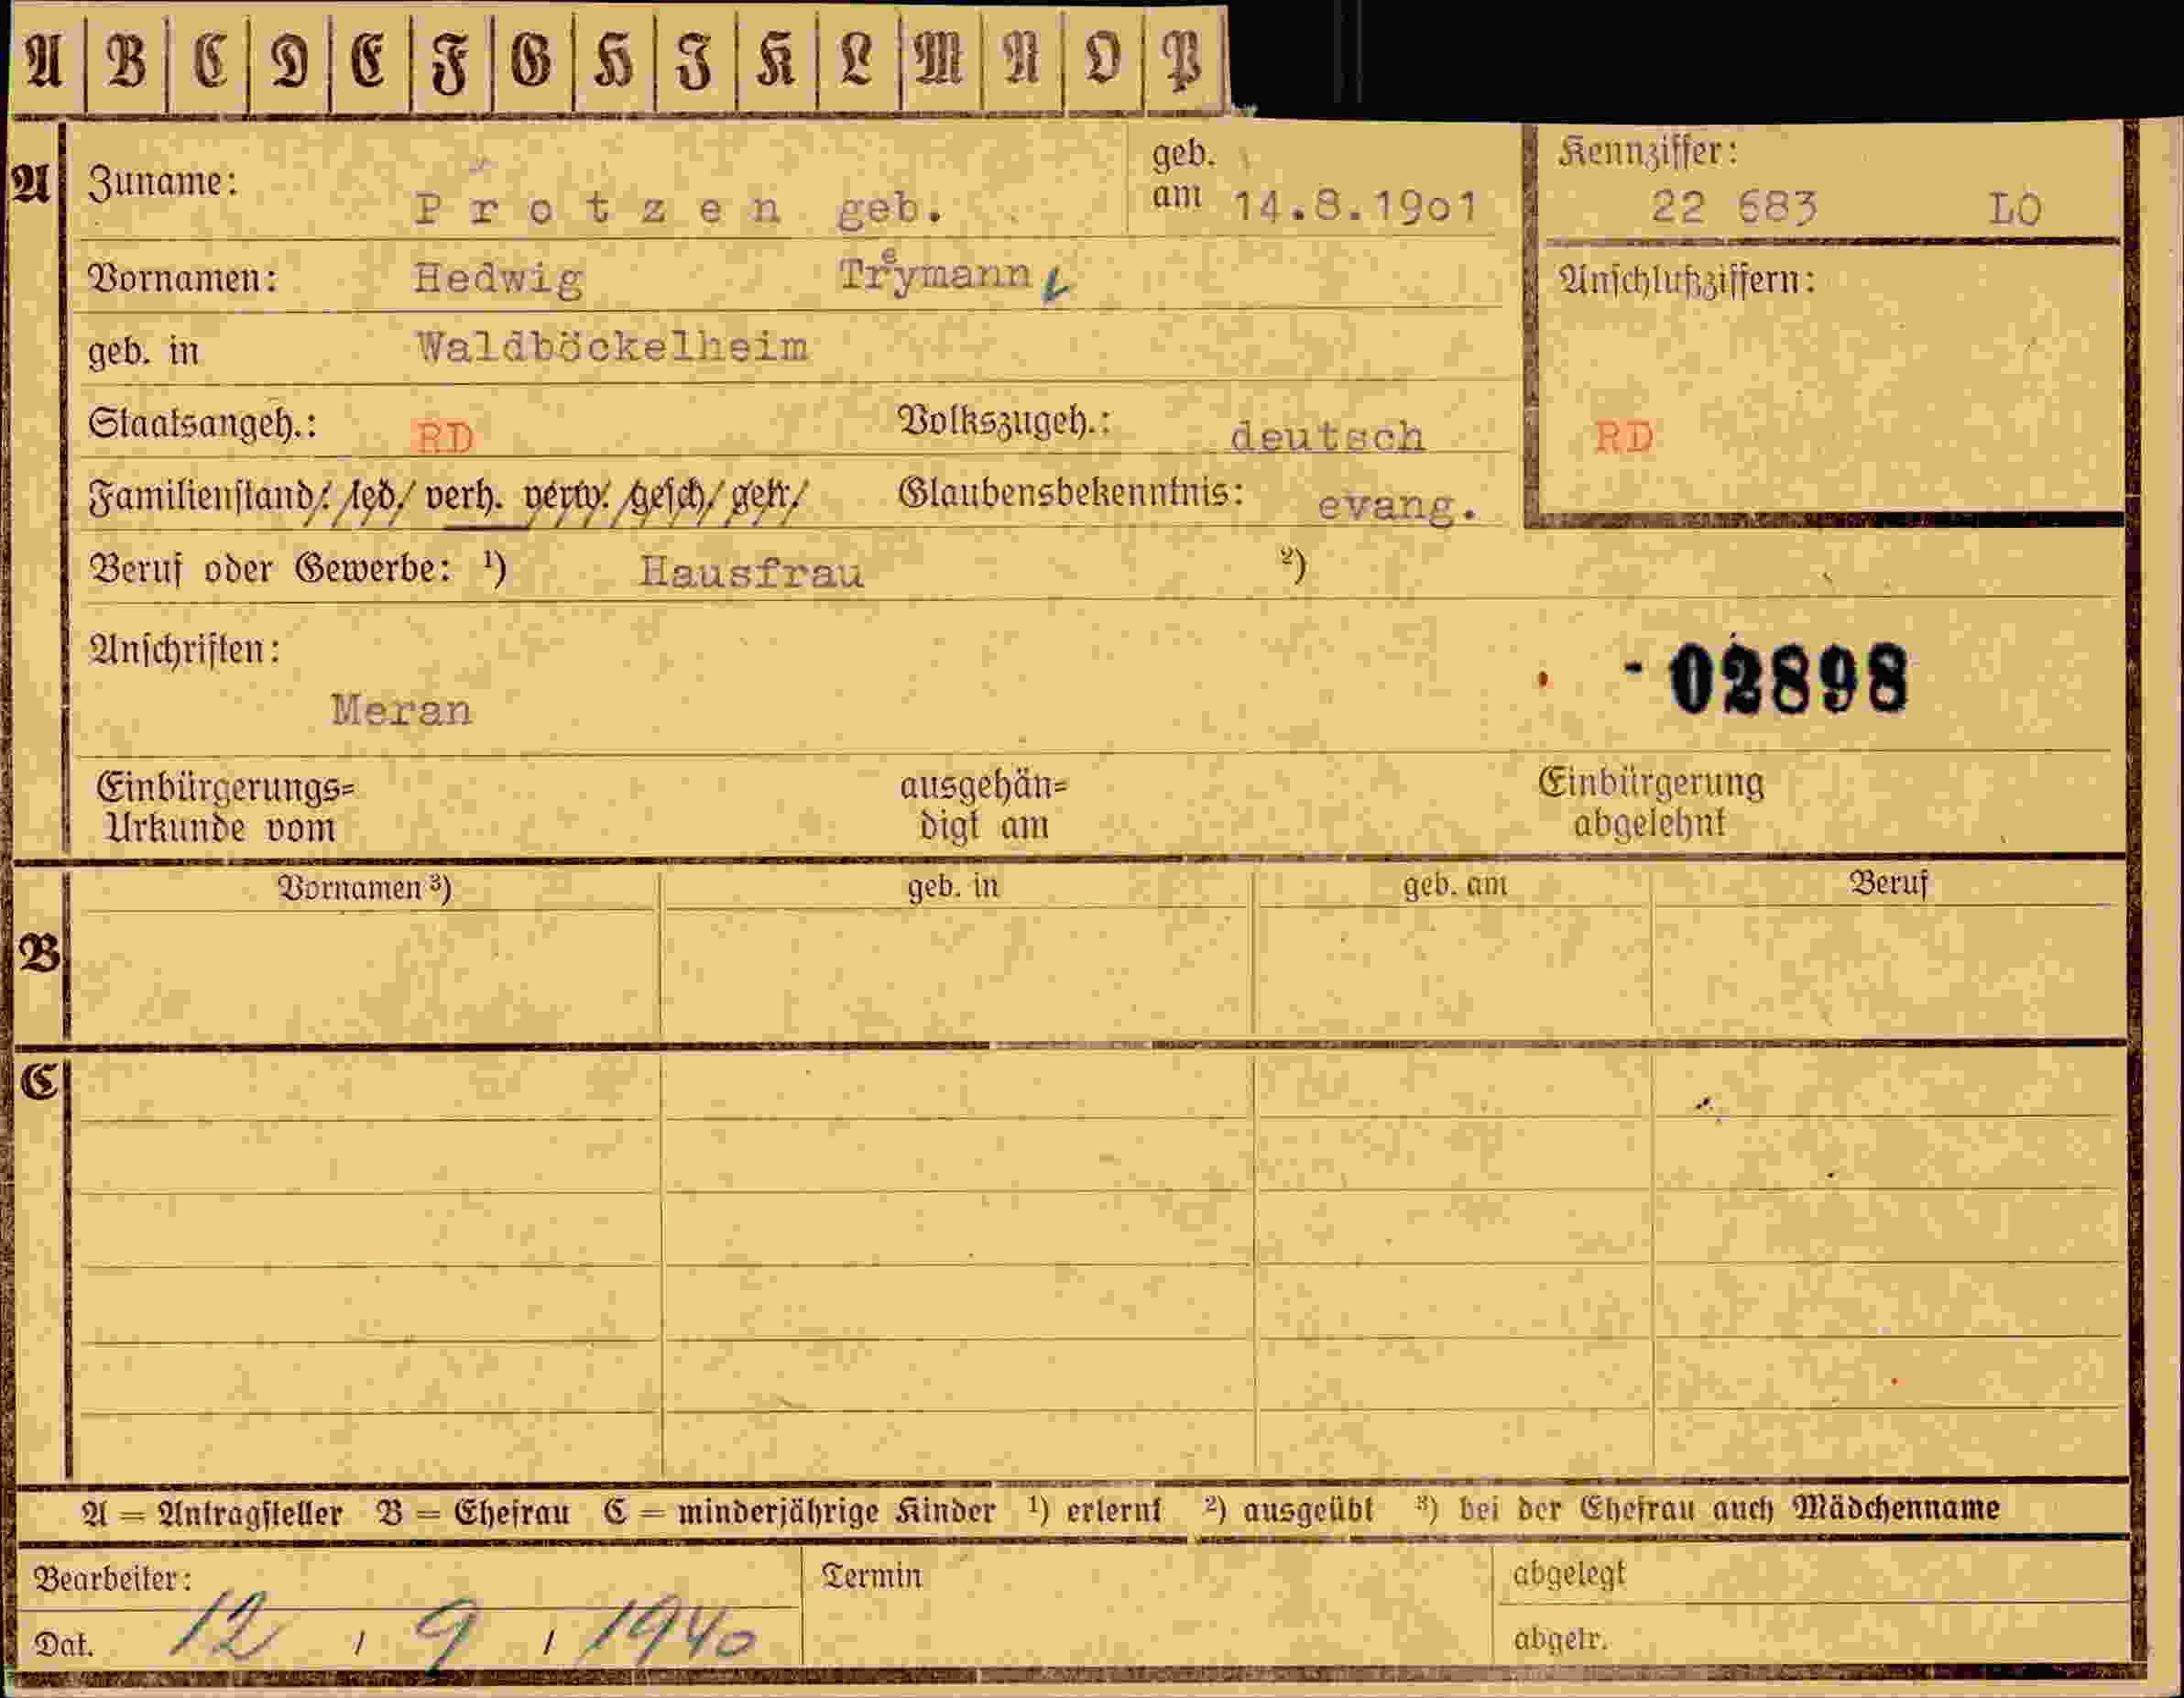 A B C D E F G H I K L M N O P
A Zuname: Protzen geb. geb. am 14.8.1901 Kennziffer: 22 683 LO
Vornamen: Hedwig Treymann Anschlußziffern:
geb. in Waldböckelheim
Staatsangeh.: RD Volkszugeh.: deutsch RD
Familienstand: led. verh. verw. gesch. getr. Glaubensbekenntnis: evang.
Beruf oder Gewerbe: ¹) Hausfrau ²)
Anschriften: - 02898
Meran
Einbürgerungs= ausgehän= Einbürgerung
Urkunde vom digt am abgelehnt
Vornamen ³) geb. in geb. am Beruf
B
C
A = Antragsteller B = Ehefrau C = minderjährige Kinder ¹) erlernt ²) ausgeübt ³) bei der Ehefrau auch Mädchenname
Bearbeiter: Termin abgelegt
Dat. 12 / 9 / 1940 abgetr.